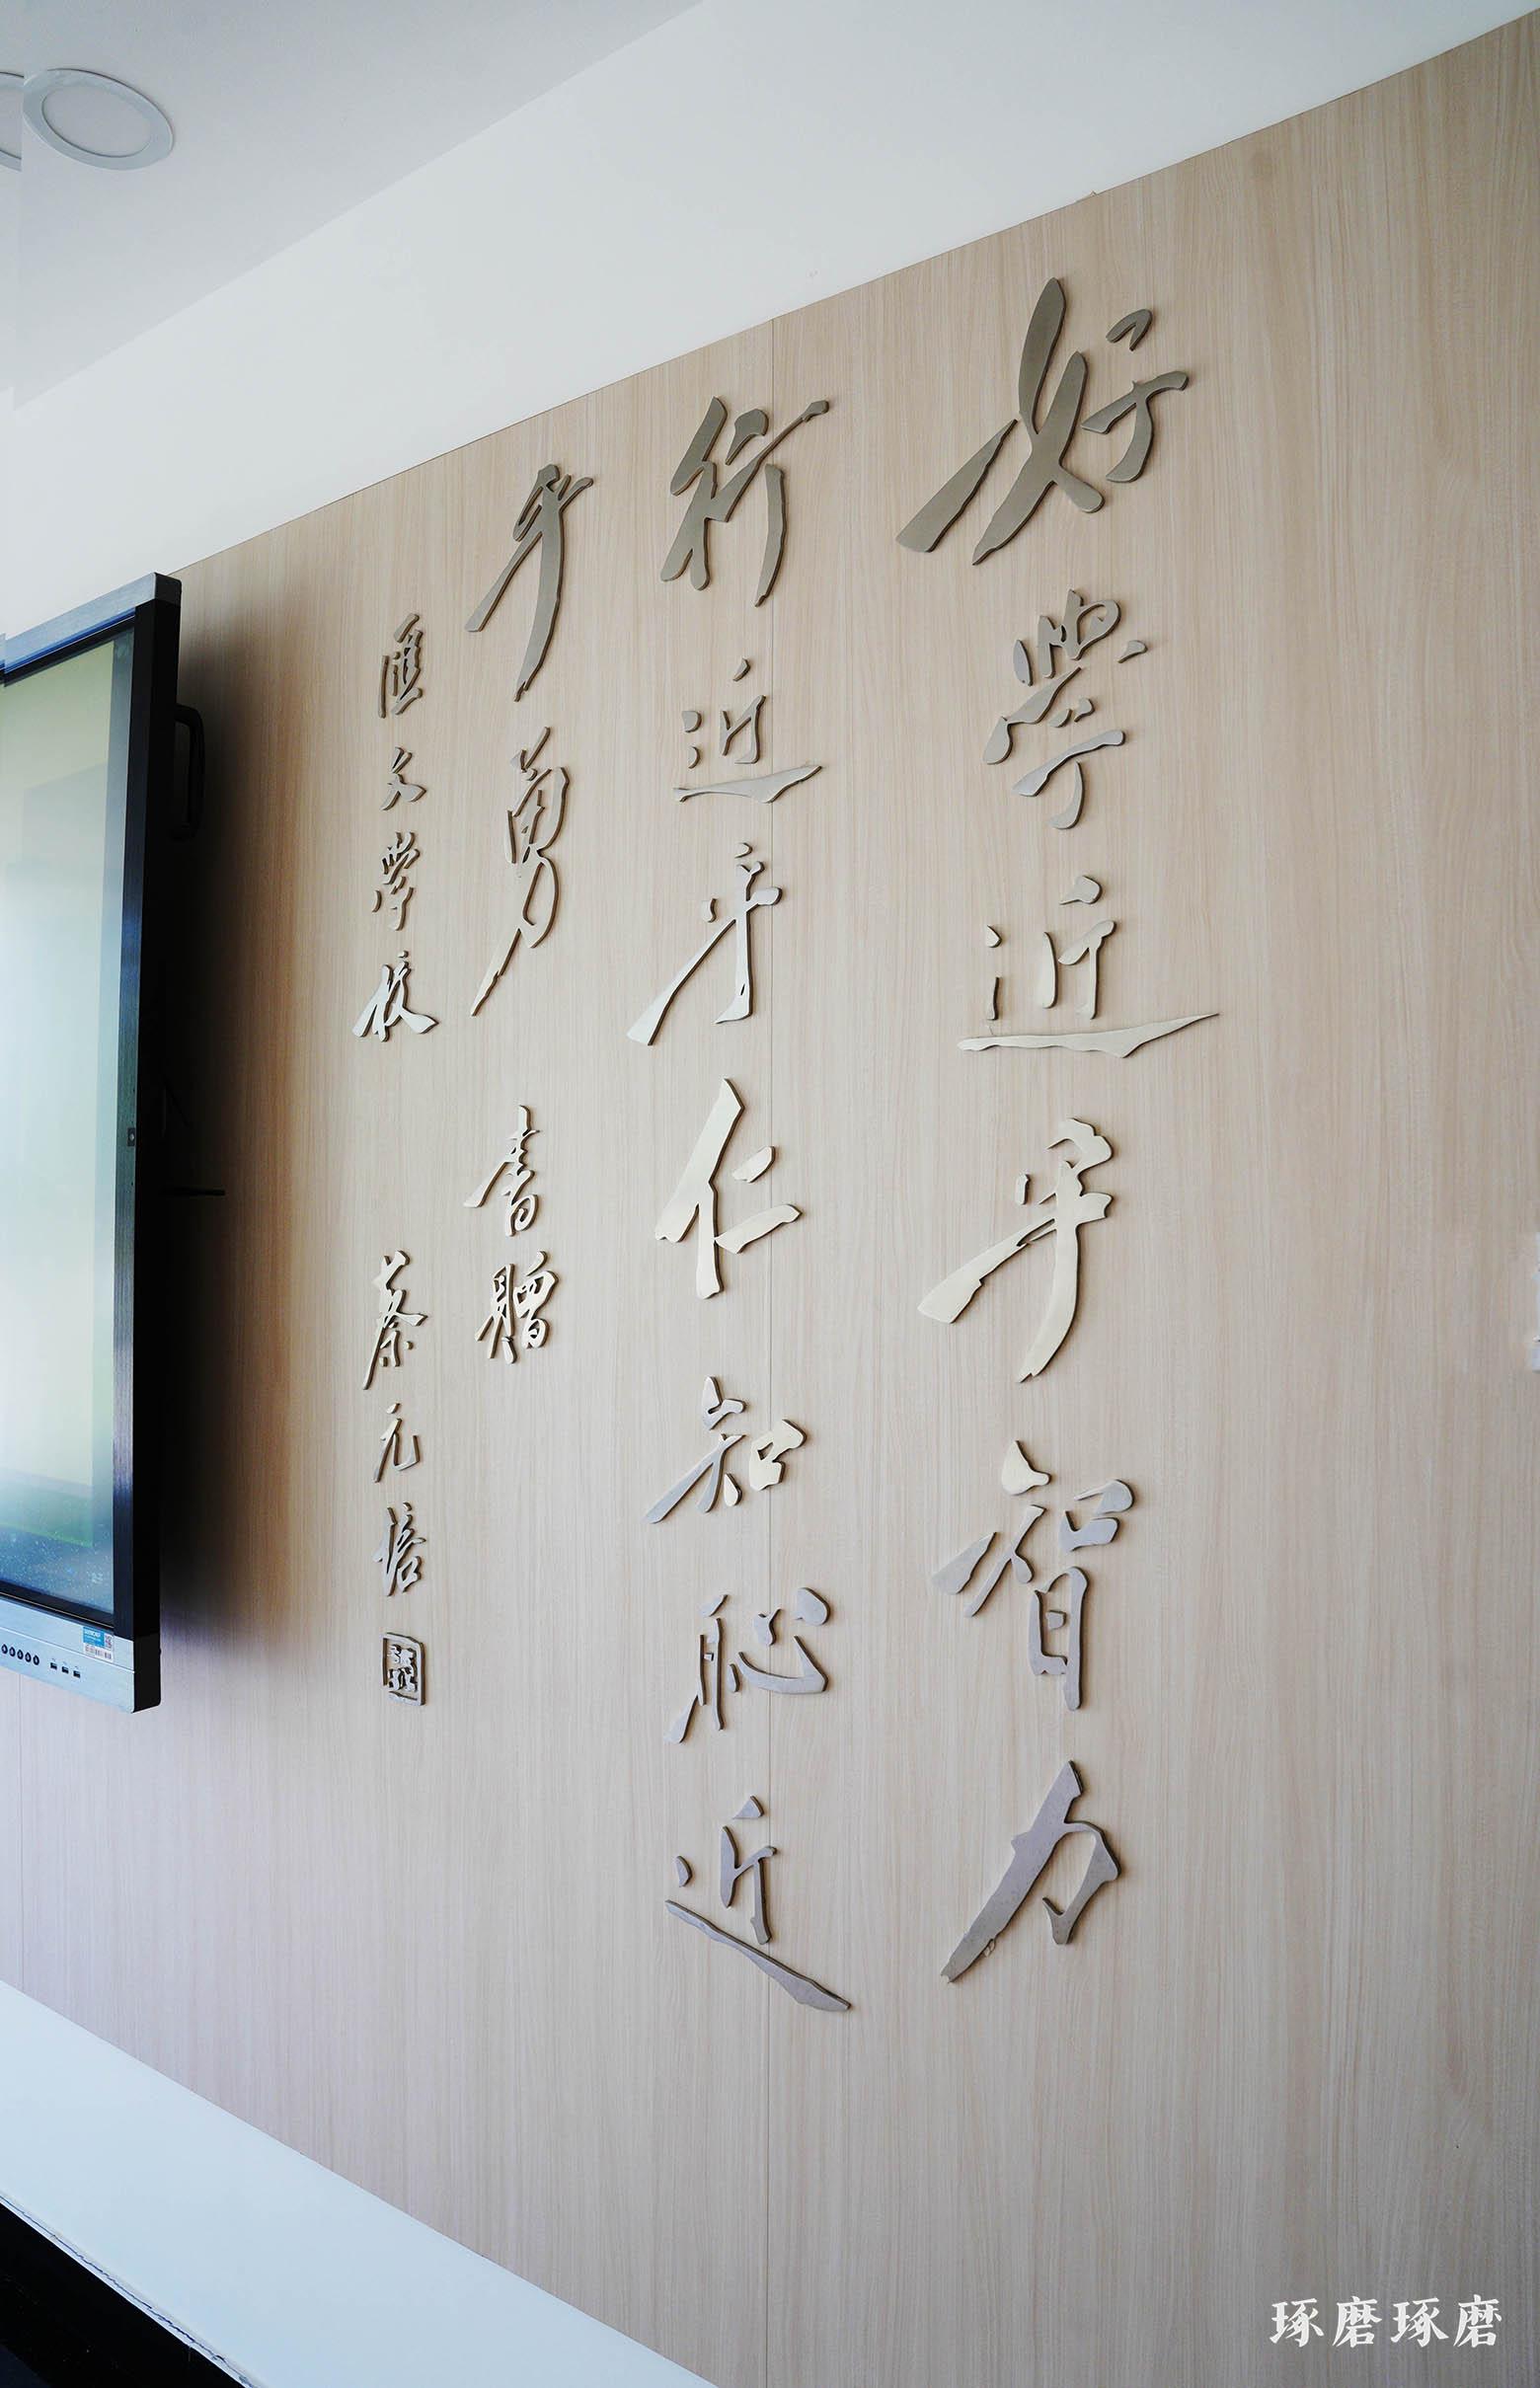 好學近乎智力
行近乎仁知恥近
乎勇 書體
匯文學校 蔡元培
琢磨琢磨